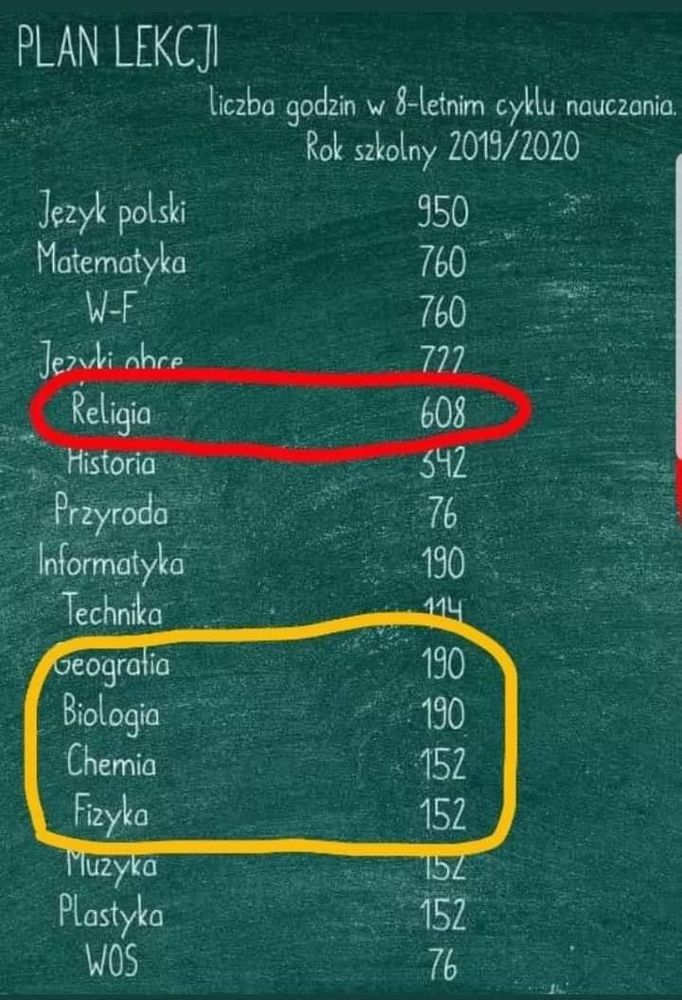 PLAN LEKCJI
liczba godzin w 8-letnim cyklu nauczania.
Rok szkolny 2019/2020
Język polski 950
Matematyka 760
W-F 760
Języki obce 722
Religia 608
Historia 342
Przyroda 76
Informatyka 190
Technika 114
Geografia 190
Biologia 190
Chemia 152
Fizyka 152
Muzyka 152
Plastyka 152
WOS 76